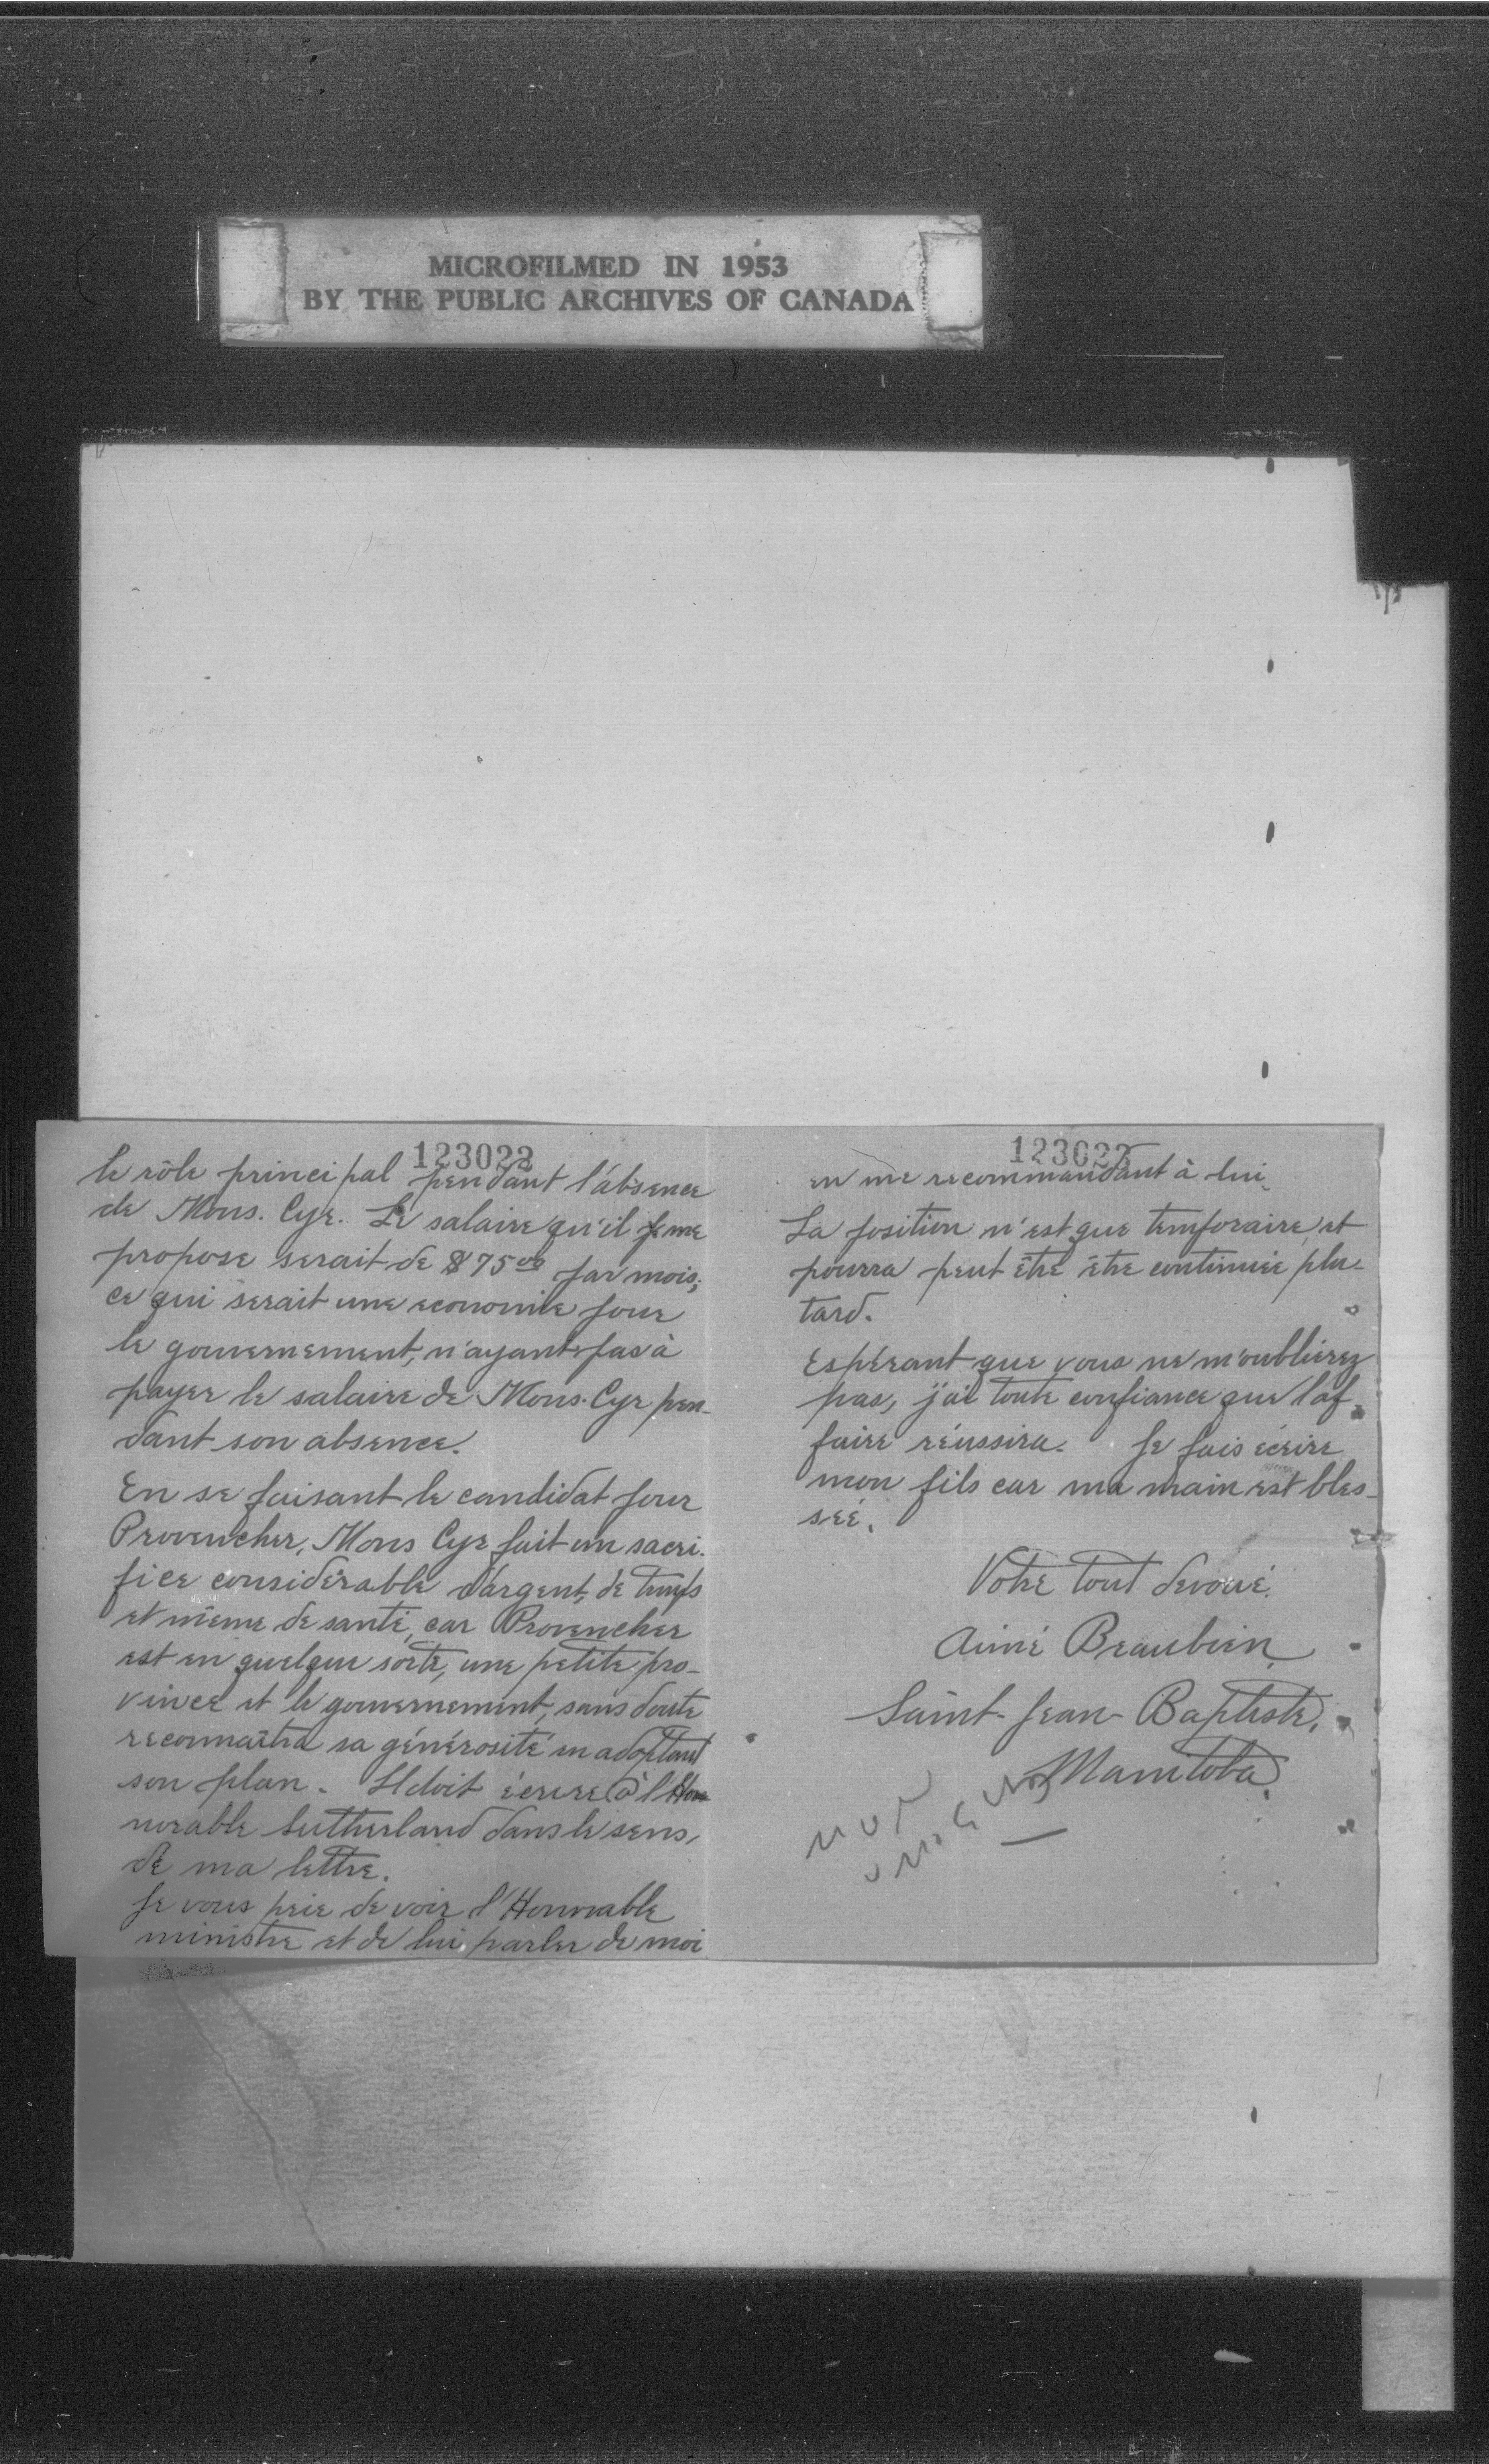 MICROFILMED IN 1953
BY THE PUBLIC ARCHIVES OF CANADA
123022
le rôle principal pendant l'absence
de Mons. Cyr. Le salaire qu'il me
propose serait de $75 00 par mois;
ce qui serait une economie pour
le gouvernement, n'ayant pas à
payer le salaire de Mons. Cyr pen-
dant son absence.
En se faisant le candidat pour
Provencher, Mons Cyr fait un sacri-
fice considérable d'argent, de temps
et même de santé, car Provencher
est en quelque sorte, une petite pro-
vince et le gouvernement, sans doute
reconnaîtra sa générosité en adoptant
son plan. Il doit écrire à l'Hon-
norable Sutherland dans le sens,
de ma lettre.
Je vous prie de voir l'Honorable
ministre et de lui parler de moi
123023
en me recommandant à lui.
La position n'est que temporaire, et
pourra peut être être continuée plu-
tard.
Espérant que vous ne m'oublierez
pas, j'ai toute confiance que l'af-
faire réussira. Je fais écrire
mon fils car ma main est bles-
sée.
Votre tout devoué.
Aimé Beaubien
Saint-Jean-Baptiste,
Manitoba.